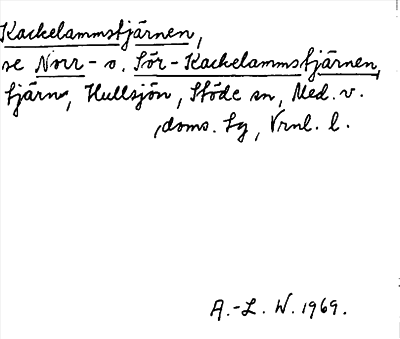 Kackelammstjärnen,
se Norr- o. Sör-Kackelammstjärnen,
tjärn, Hullsjön, Stöde sn, Med. v.
doms. Lg, Vrnl. l.
A.-L. W. 1969.